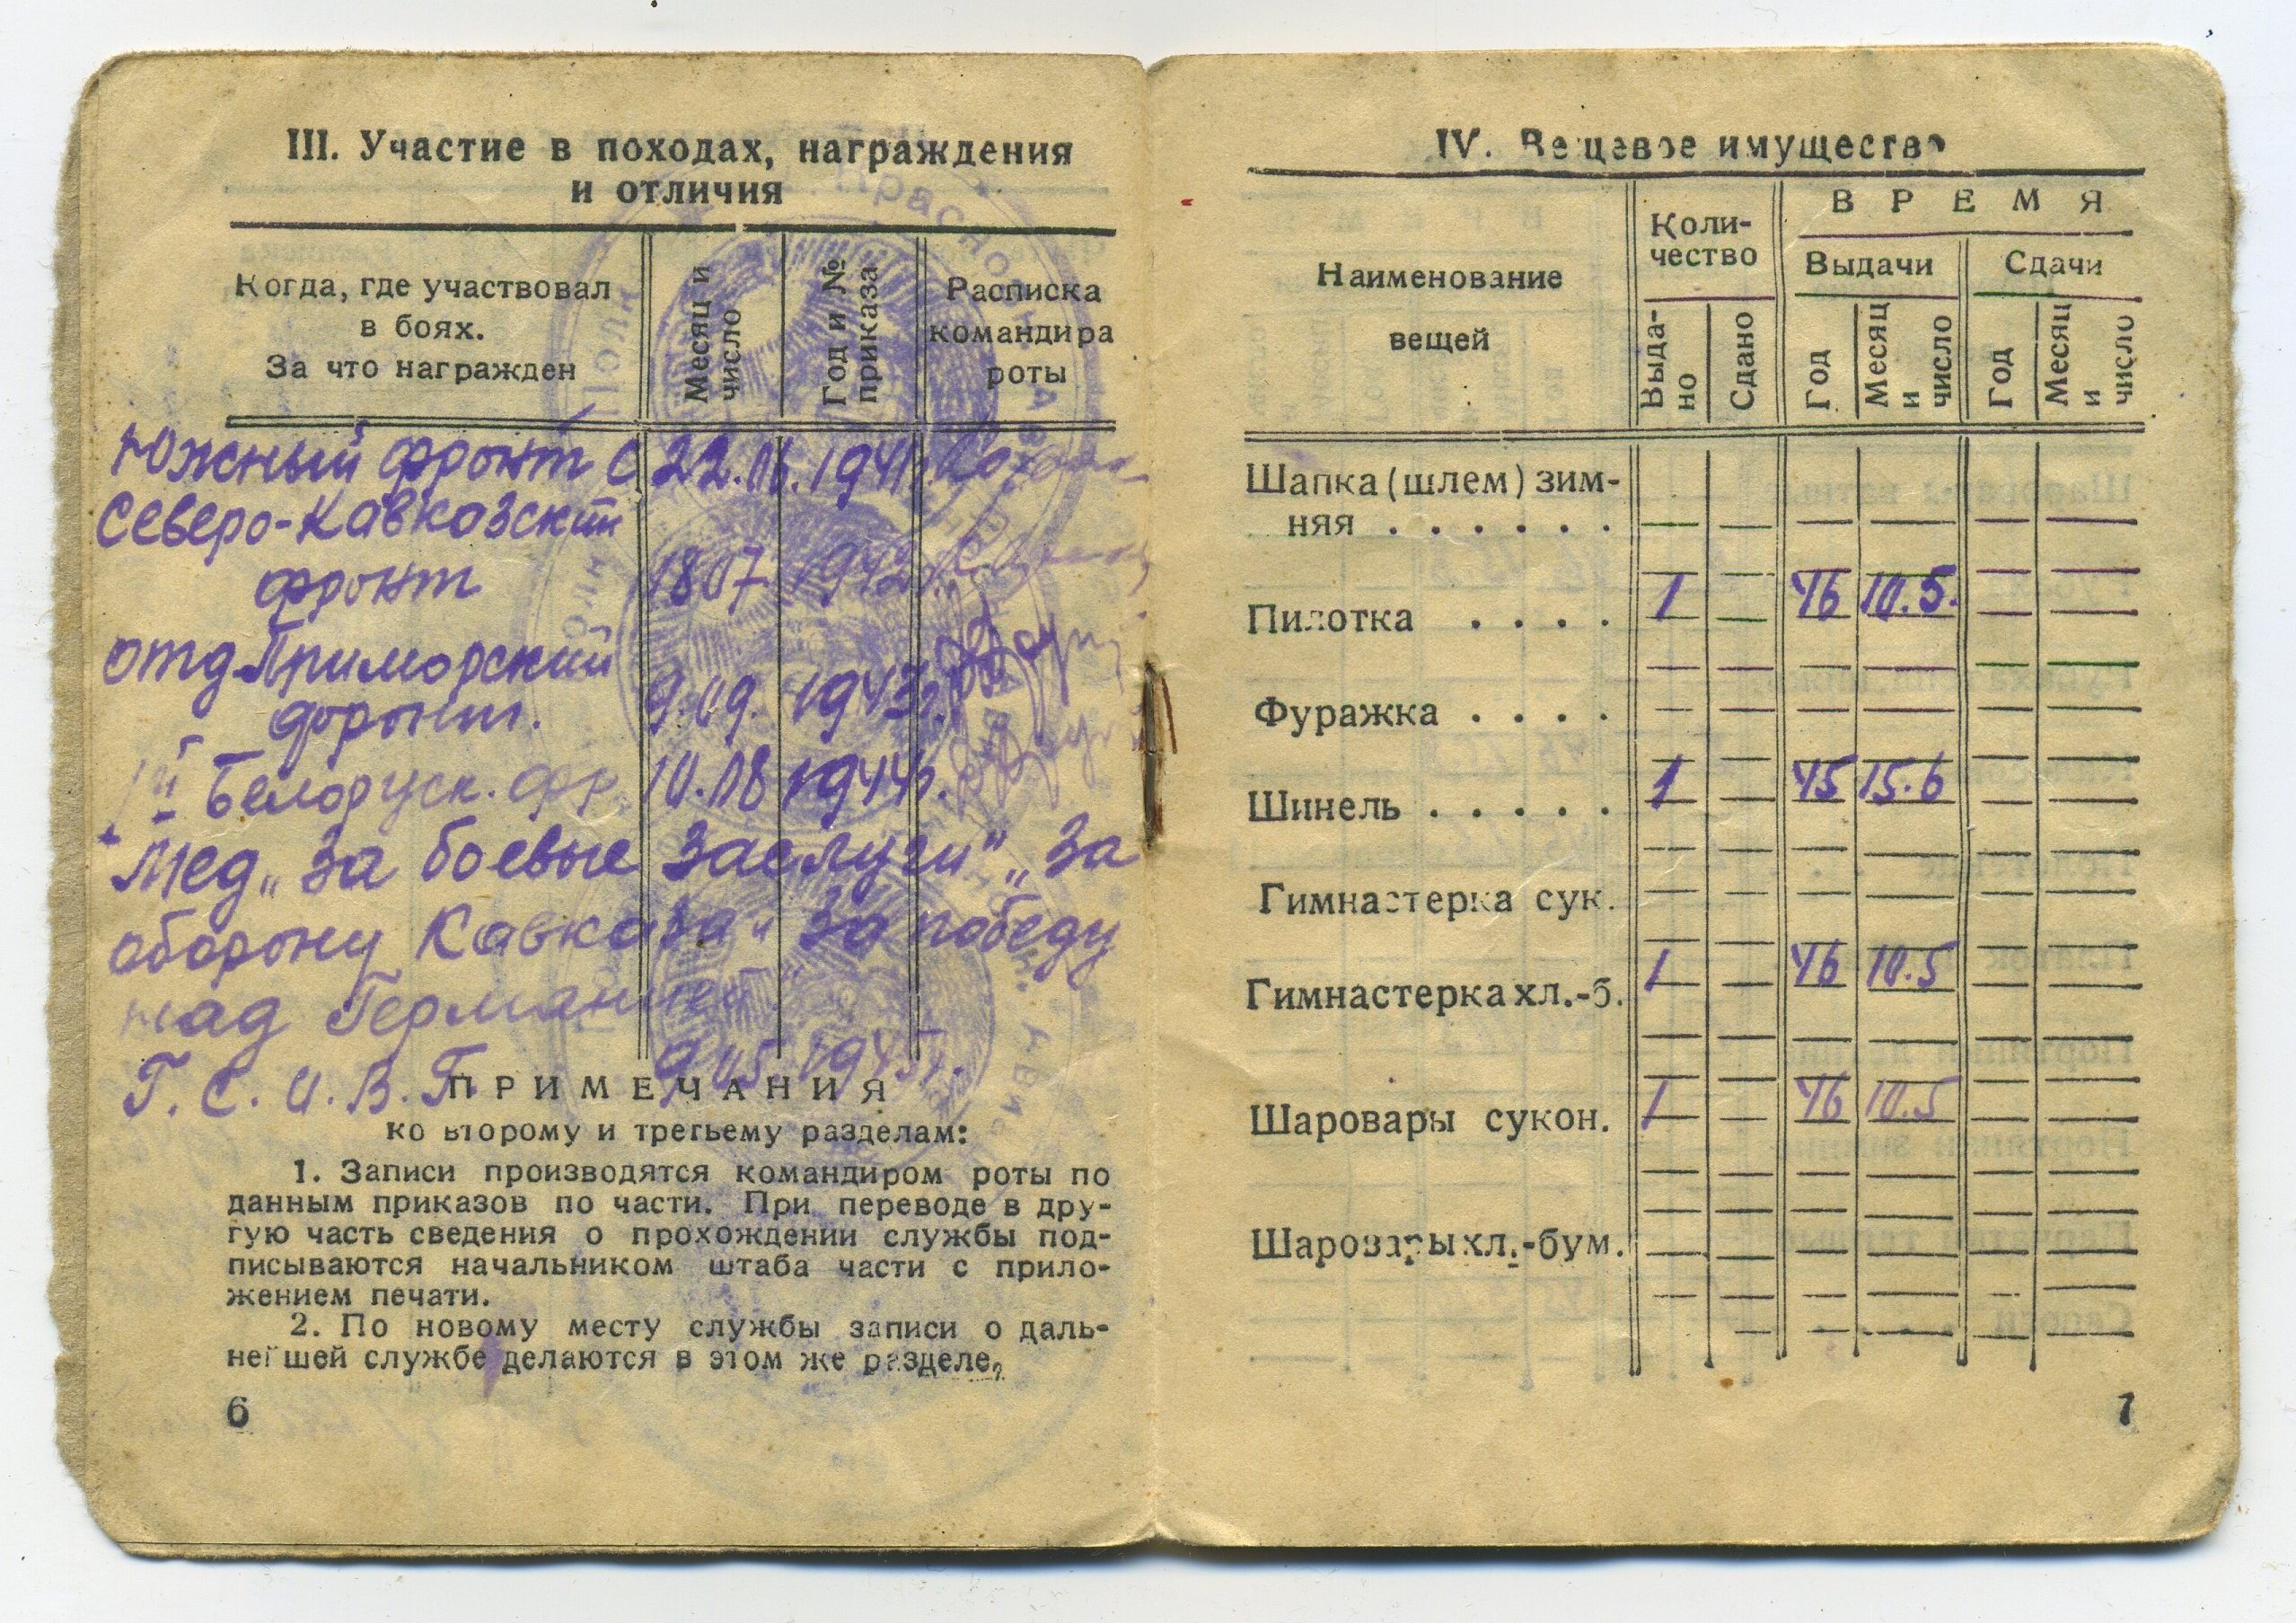 III. Участие в походах, награждения
и отличия
Когда, где участвовал
в боях.
За что награжден
Месяц и
число
Год и №
приказа
Расписка
командира
роты
Южный фронт с 22.06.1941г.
Северо-Кавказский
фронт 18 07 1942г.
отд Приморский
фронт. 9.09. 1943г.
1й Белорусск. фр. 10.08 1944г.
Мед „За боевые заслуги" „За
оборону Кавказа" За победу
над Германией"
9.05 1945г.
Г. С. О. В. Г.
ПРИМЕЧАНИЯ
ко второму и третьему разделам:
1. Записи производятся командиром роты по
данным приказов по части. При переводе в дру-
гую часть сведения о прохождении службы под-
писываются начальником штаба части с прило-
жением печати.
2. По новому месту службы записи о даль-
нейшей службе делаются в этом же разделе.
6
IV. Вещевое имущество
Наименование
вещей
Коли-
чество
ВРЕМЯ
Выдачи
Сдачи
Выда-
но
Сдано
Год
Месяц
и
число
Год
Месяц
и
число
Шапка (шлем) зим-
няя . . . . . .
Пилотка . . . . 1 46 10.5.
Фуражка . . . .
Шинель . . . . . 1 45 15.6
Гимнастерка сук.
Гимнастерка хл.-б. 1 46 10.5
Шаровары сукон. 1 46 10.5
Шаровары хл.-бум.
7